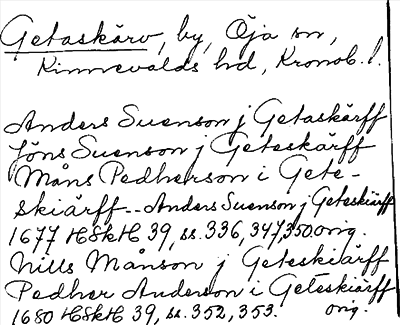 Getaskärv, by, Öja sn,
Kinnevalds hd, Kronob. l.
Anders Suenson j Getaskärff
Jöns Suenson j Geteskärff
Måns Pedherson i Gete-
skiärff -- Anders Suenson j Geteskiärff
1677 HSkH 39, ss. 336, 347, 350 orig.
Nills Månson j Geteskiärff
Pedher Anderson i Geteskiärff
1680 HSkH 39, ss. 352, 353. orig.